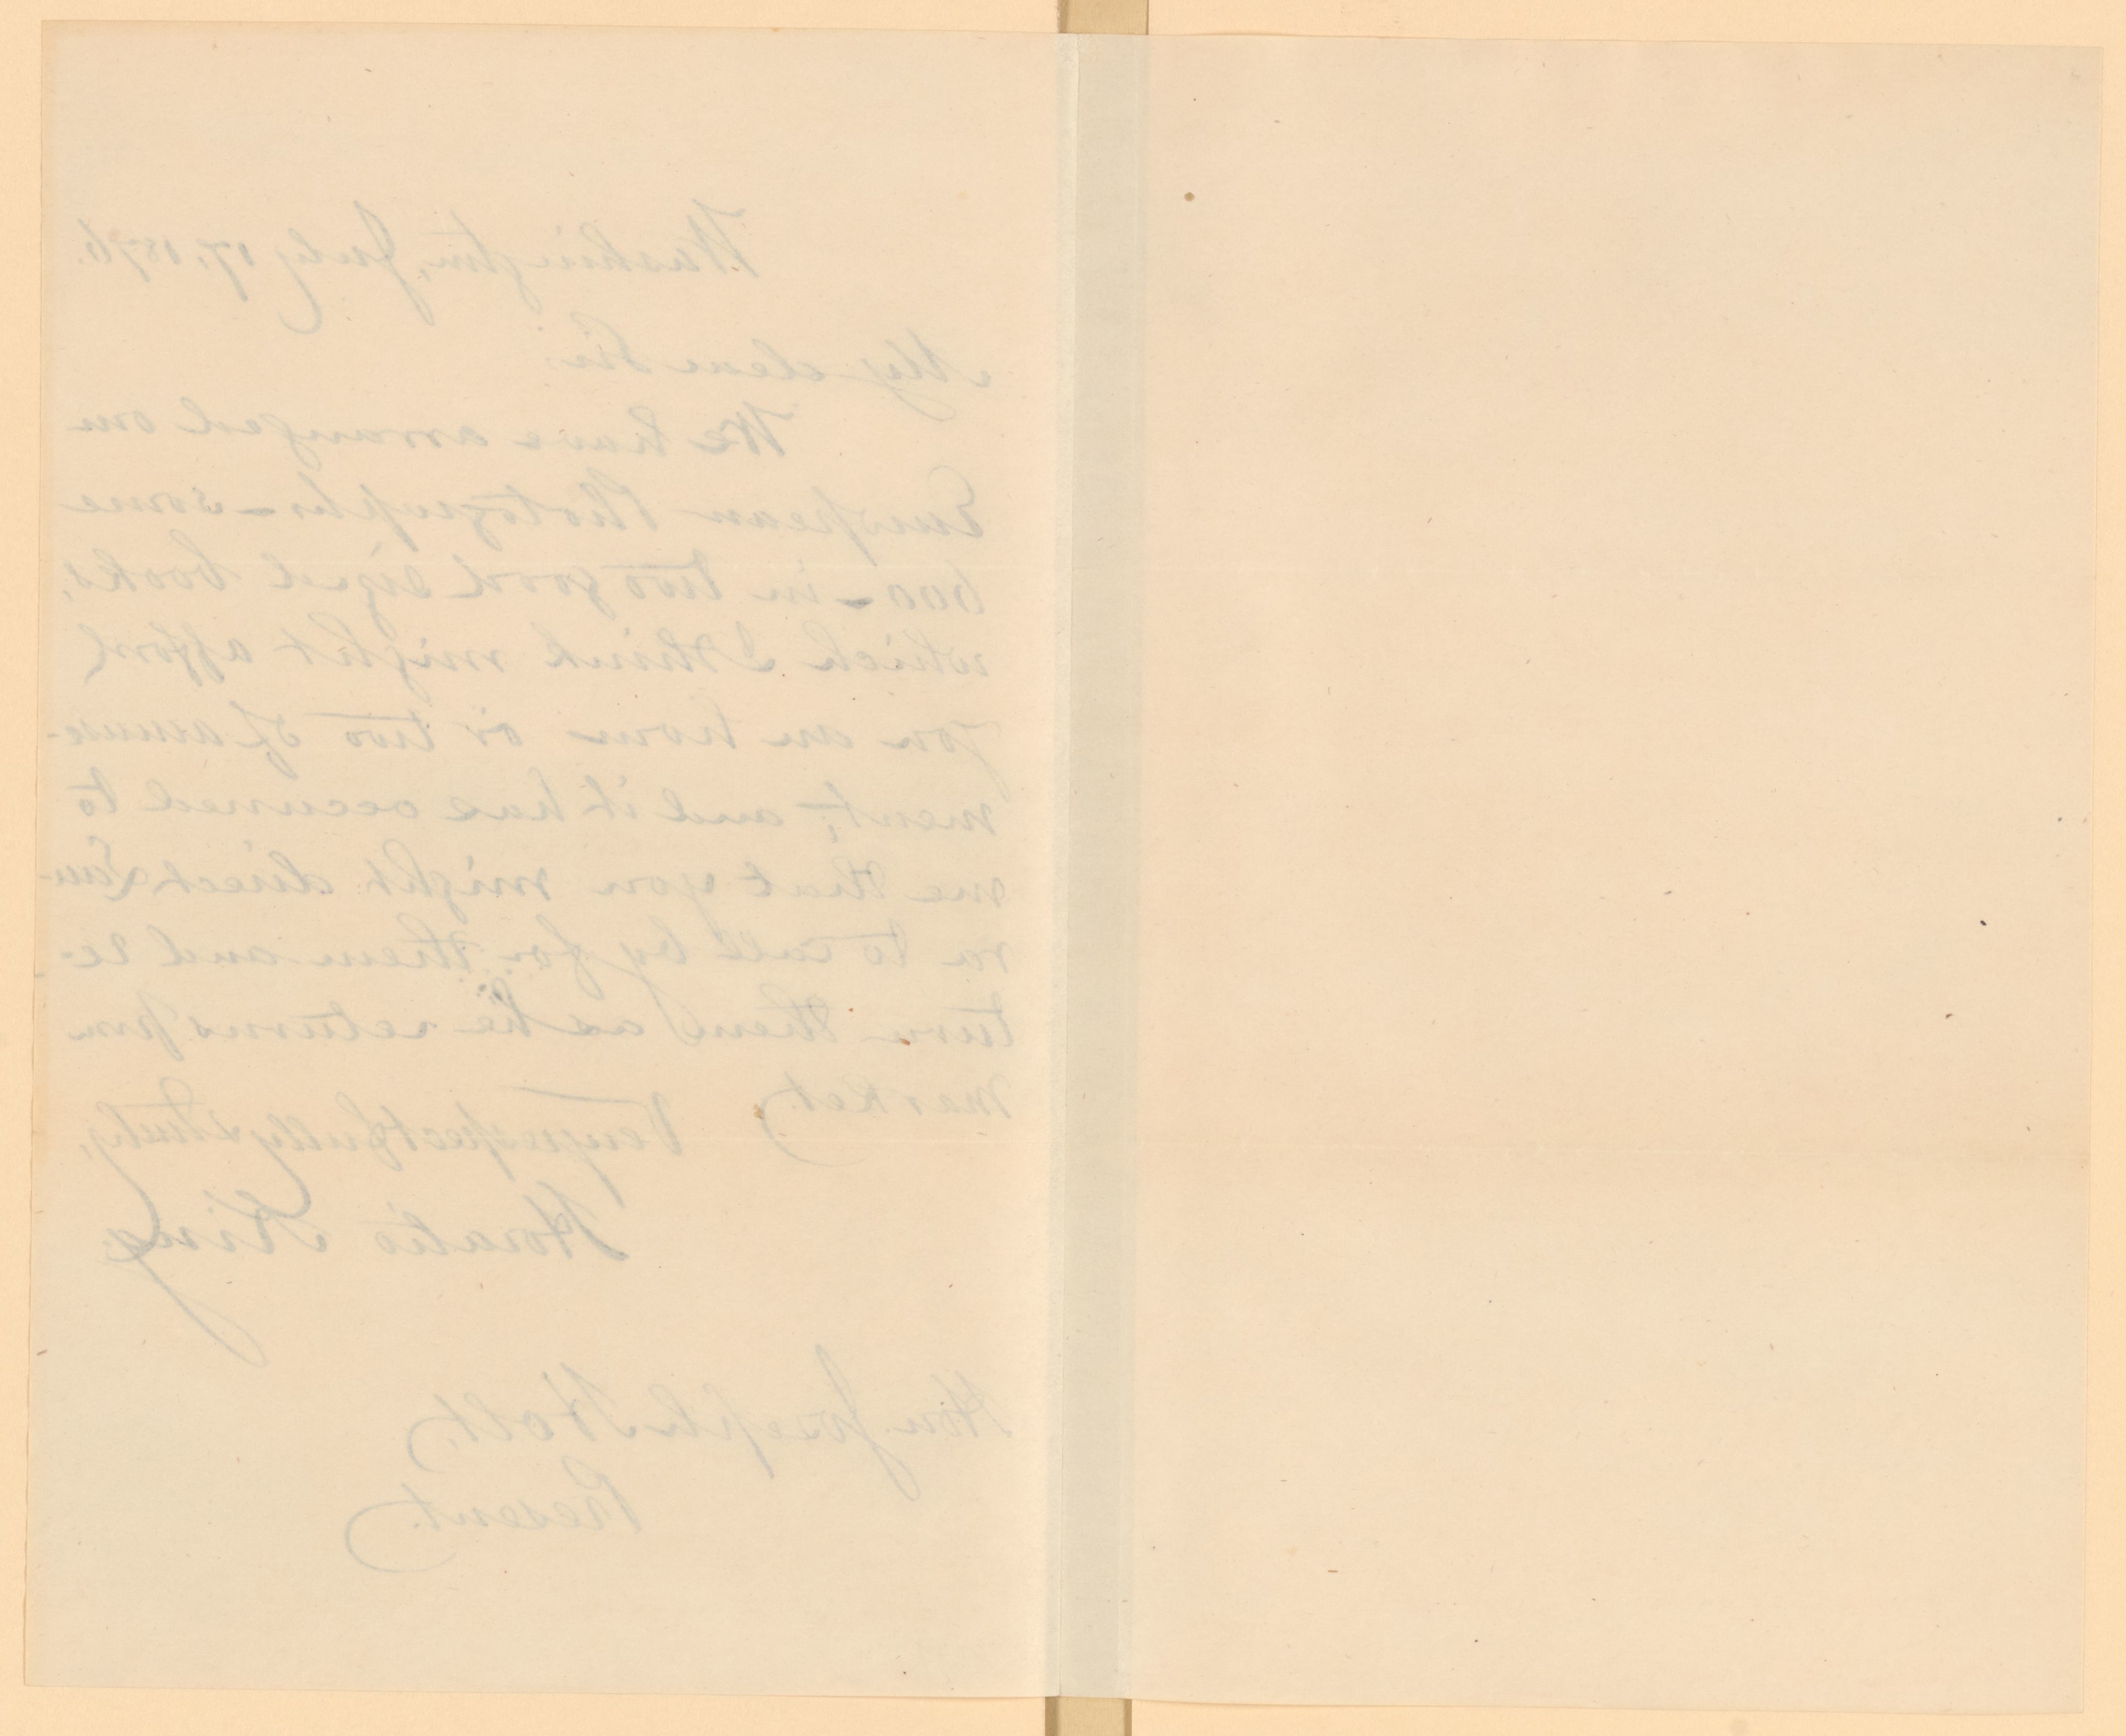 Washington, July 17, 1876.
My dear Sir:
We have arranged our
European Photographs - some
600 - in two good sized books,
which I think might afford
you an hour or two of amuse-
ment; and it has occurred to
me that you might direct Lau-
ra to call by for them and re-
turn them as he returns from
market.
Very respectfully & truly,
Horatio King
Hon Joseph Holt,
Present.